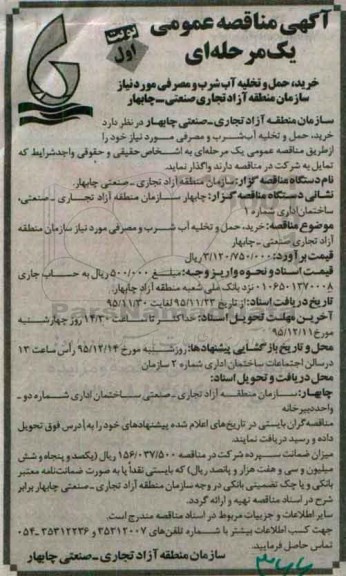 آگهی مناقصه عمومی
یک مرحله‌ای
نوبت
اول
خرید، حمل و تخلیه آب شرب و مصرفی مورد نیاز
سازمان منطقه آزاد تجاری صنعتی-چابهار
سازمان منطقه آزاد تجاری-صنعتی چابهار در نظر دارد
خرید، حمل و تخلیه آب شرب و مصرفی مورد نیاز خود را
از طریق مناقصه عمومی یک مرحله‌ای به اشخاص حقیقی و حقوقی واجد شرایط که
تمایل به شرکت در مناقصه دارند واگذار نماید.
نام دستگاه مناقصه گزار: سازمان منطقه آزاد تجاری - صنعتی چابهار.
نشانی دستگاه مناقصه گزار: چابهار سازمان منطقه آزاد تجاری - صنعتی،
ساختمان اداری شماره ۱
موضوع مناقصه: خرید، حمل و تخلیه آب شرب و مصرفی مورد نیاز سازمان منطقه
آزاد تجاری صنعتی - چابهار
قیمت برآورد: ۳/۱۲۰/۷۵۰/۰۰۰ ریال
قیمت اسناد و نحوه واریز وجه: مبلغ ۵۰۰/۰۰۰ ریال به حساب جاری
۰۱۰۶۵۰۱۳۷۰۰۰۸ نزد بانک ملی شعبه منطقه آزاد چابهار.
تاریخ دریافت اسناد: از تاریخ ۹۵/۱۱/۲۳ لغایت ۹۵/۱۱/۳۰
آخرین مهلت تحویل اسناد: حداکثر تا ساعت ۱۴:۳۰ روز چهارشنبه
مورخ ۹۵/۱۲/۱۱
محل و تاریخ بازگشایی پیشنهادها: روز شنبه مورخ ۹۵/۱۲/۱۴ رأس ساعت ۱۳
در سالن اجتماعات ساختمان اداری شماره ۲ سازمان
محل دریافت و تحویل اسناد:
چابهار: سازمان منطقه آزاد تجاری - صنعتی ساختمان اداری شماره دو -
واحد دبیرخانه
مناقصه‌گران بایستی در تاریخ‌های اعلام شده پیشنهادهای خود را به آدرس فوق تحویل
داده و رسید دریافت نمایند.
میزان ضمانت سپرده شرکت در مناقصه ۱۵۶/۰۳۷/۵۰۰ ریال (یکصد و پنجاه و شش
میلیون و سی و هفت هزار و پانصد ریال) که بایستی نقداً یا به صورت ضمانت‌نامه معتبر
بانکی و یا چک تضمینی بانکی در وجه سازمان منطقه آزاد تجاری - صنعتی چابهار برابر
شرح در اسناد مناقصه تهیه و ارائه گردد.
سایر اطلاعات و جزییات مربوط در اسناد مناقصه مندرج است.
جهت کسب اطلاعات بیشتر با شماره تلفن‌های ۳۵۳۱۲۰۰۷ و ۳۵۳۱۲۲۳۶-۰۵۴
تماس حاصل فرمایید.
سازمان منطقه آزاد تجاری - صنعتی چابهار